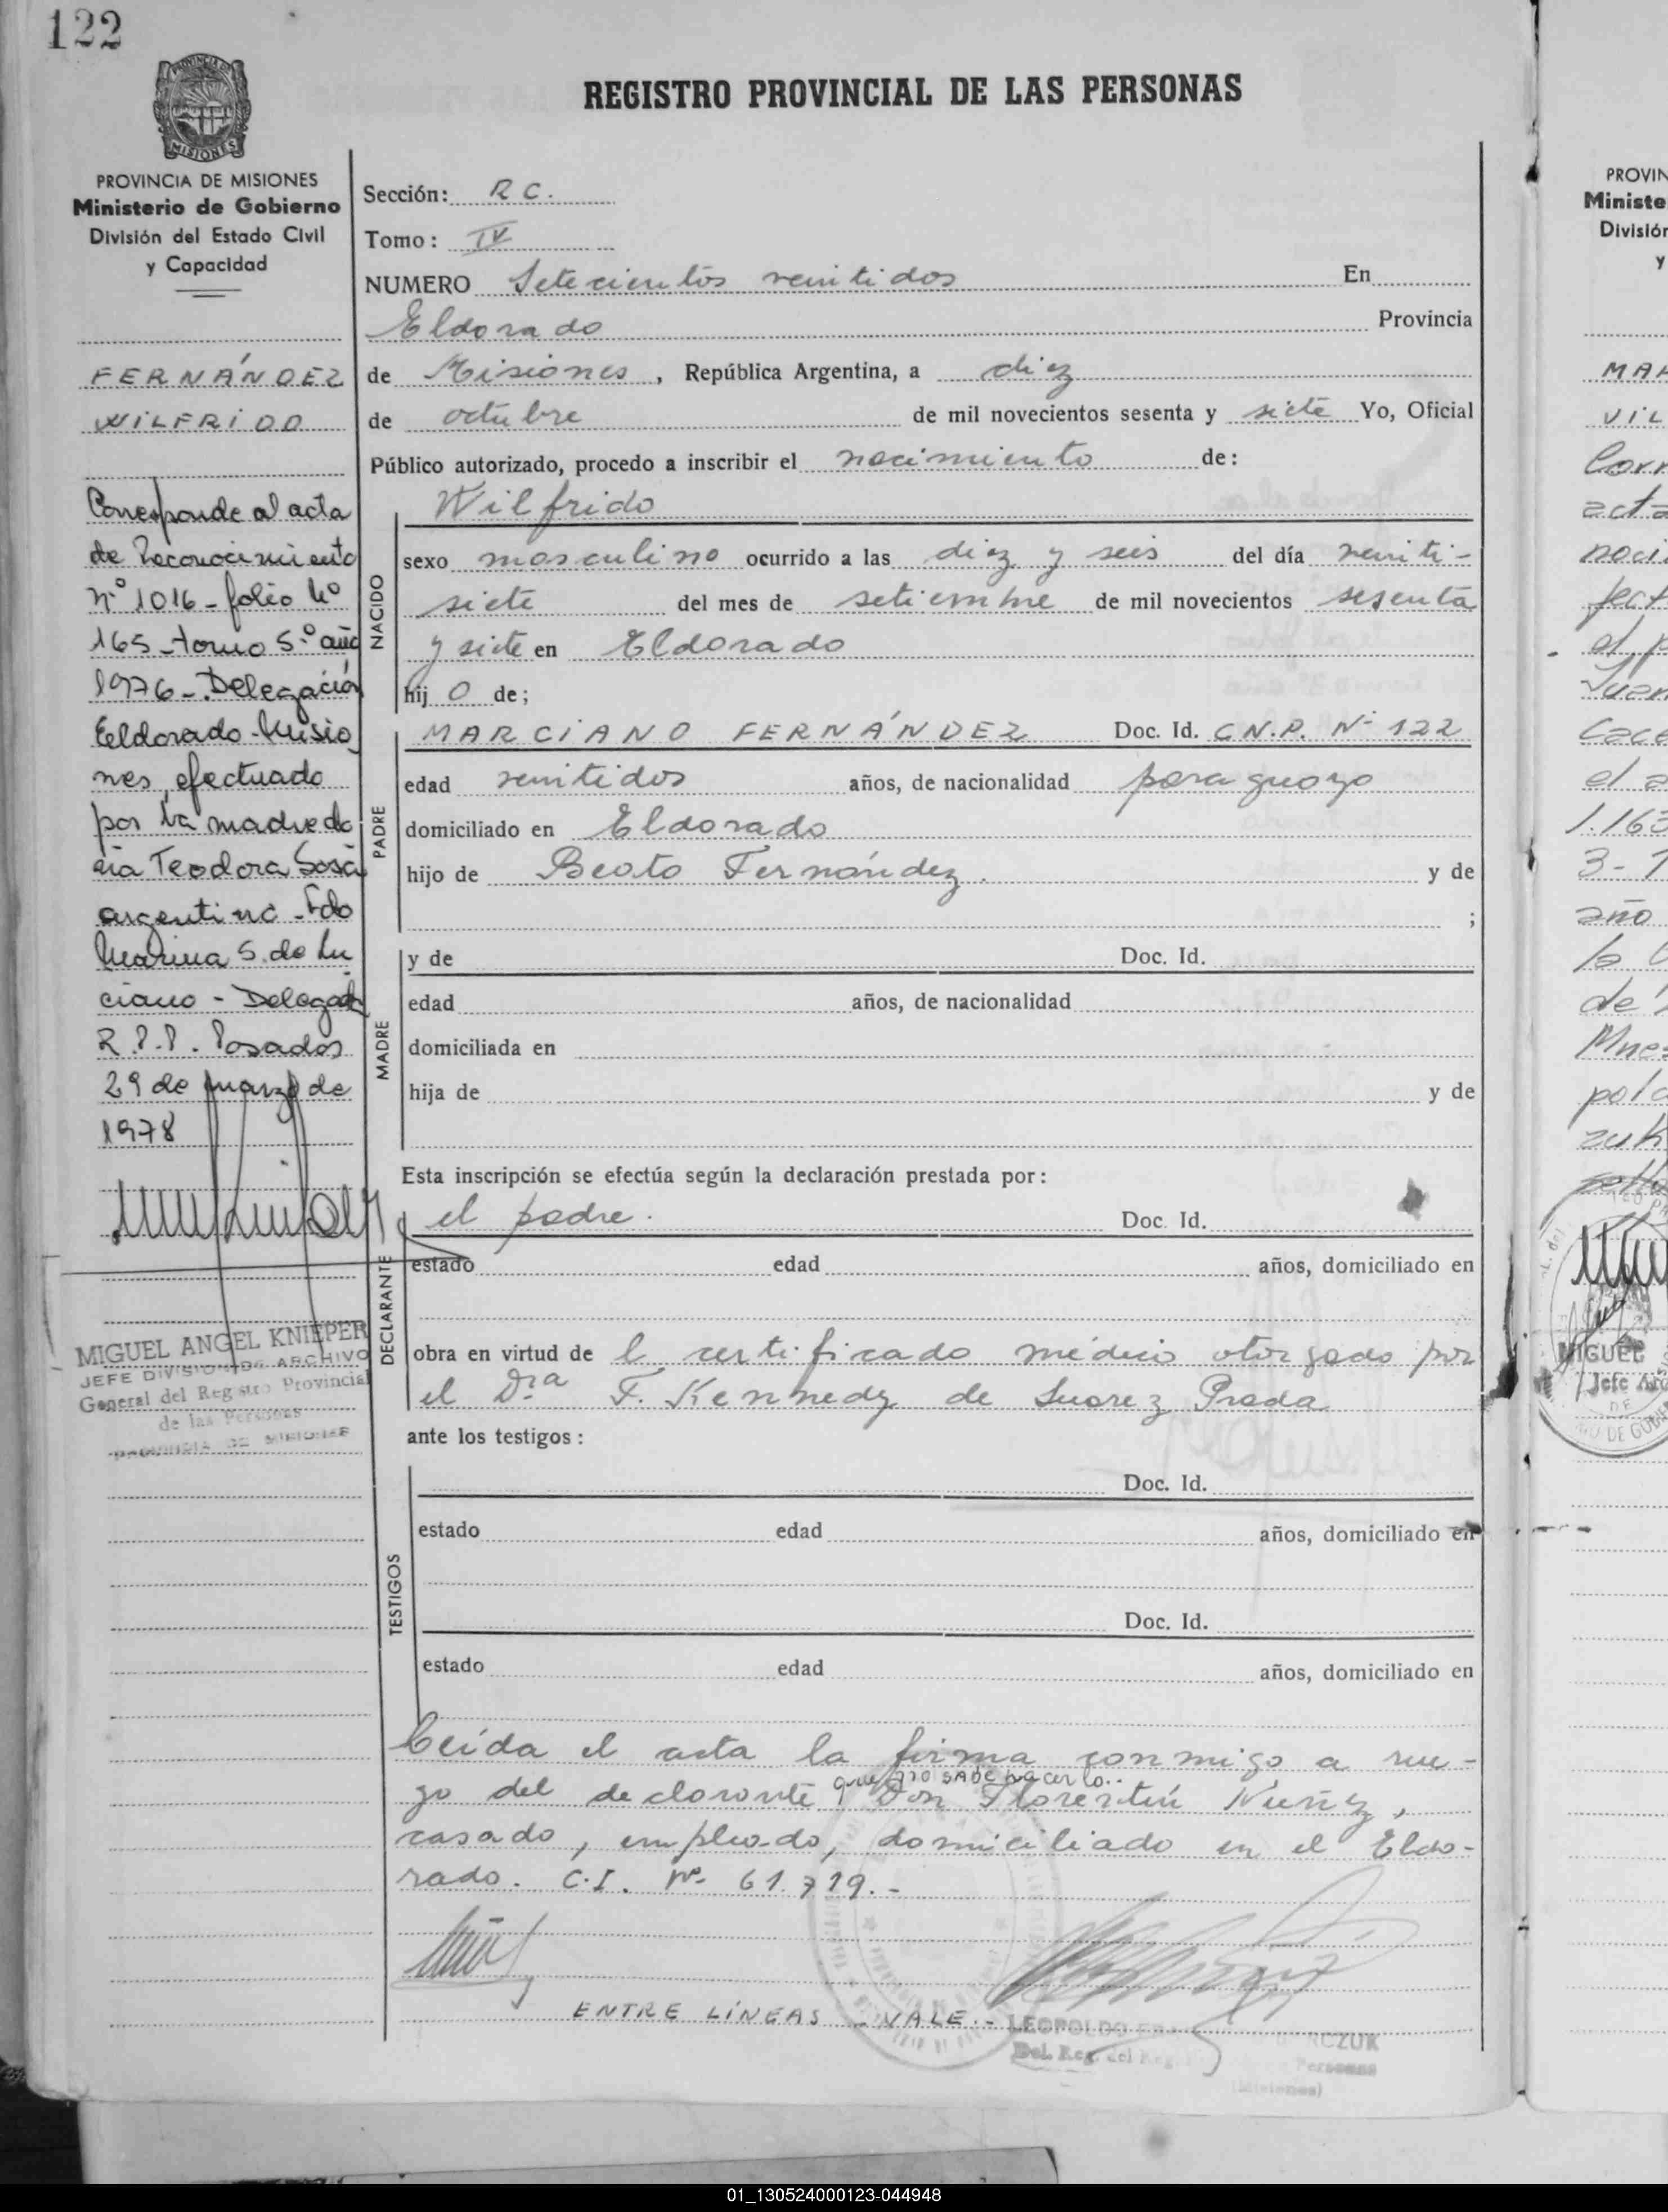 122
MISIONES
PROVINCIA DE MISIONES
Ministerio de Gobierno
División del Estado Civil
y Capacidad
FERNÁNDEZ
WILFRIDO
Corresponde al acta
de Reconocimiento
nº 1016 - folio Nº
165 - tomo 5.º año
1976 - Delegación
Eeldorado - Misio
nes, efectuado
por la madre do
ña Teodora Sosa
argentina - Fdo
Marina S. de Lu
ciano - Delegada
R.P.P. Posadas
29 de marzo de
1978
MIGUEL ANGEL KNIEPER
JEFE DIVISION DE ARCHIVO
General del Registro Provincial
de las Personas
PROVINCIA DE MISIONES
REGISTRO PROVINCIAL DE LAS PERSONAS
Sección: R C.
Tomo: IV
NUMERO Setecientos veintidos En
Eldorado Provincia
de Misiones, República Argentina, a diez
de octubre de mil novecientos sesenta y siete Yo, Oficial
Público autorizado, procedo a inscribir el nacimiento de:
NACIDO
Wilfrido
sexo masculino ocurrido a las diez y seis del día veinti-
siete del mes de setiembre de mil novecientos sesenta
y siete en Eldorado
hij o de;
PADRE
MARCIANO FERNÁNDEZ Doc. Id. C.N.P. Nº 122
edad veintidos años, de nacionalidad paraguayo
domiciliado en Eldorado
hijo de Beato Fernández. y de
;
MADRE
y de Doc. Id.
edad años, de nacionalidad
domiciliada en
hija de y de
Esta inscripción se efectúa según la declaración prestada por:
DECLARANTE
el padre. Doc. Id.
estado edad años, domiciliado en
obra en virtud de l certificado médico otorgado por
el Dra F. Kennedy de Suarez Prada
ante los testigos:
TESTIGOS
Doc. Id.
estado edad años, domiciliado en
Doc. Id.
estado edad años, domiciliado en
Leída el acta la firma conmigo a rue-
que no sabe hacerlo..
go del declarante, Don Florentín Nuñez,
casado, empleado, domiciliado en el Eldo-
rado. C.I. Nº 61.719.-
ENTRE LÍNEAS - VALE.-
LEOPOLDO
Del. Reg. del Reg. Personas
(Misiones)
PROVIN
Ministe
Divisiór
y
MAR
VIL
Corr
acta
noci
fect
el p
Juan
Cace
el a
1.163
3-
año
la
de
Mne
pola
zuk
MIGUEL
Jefe Arc
01_130524000123-044948